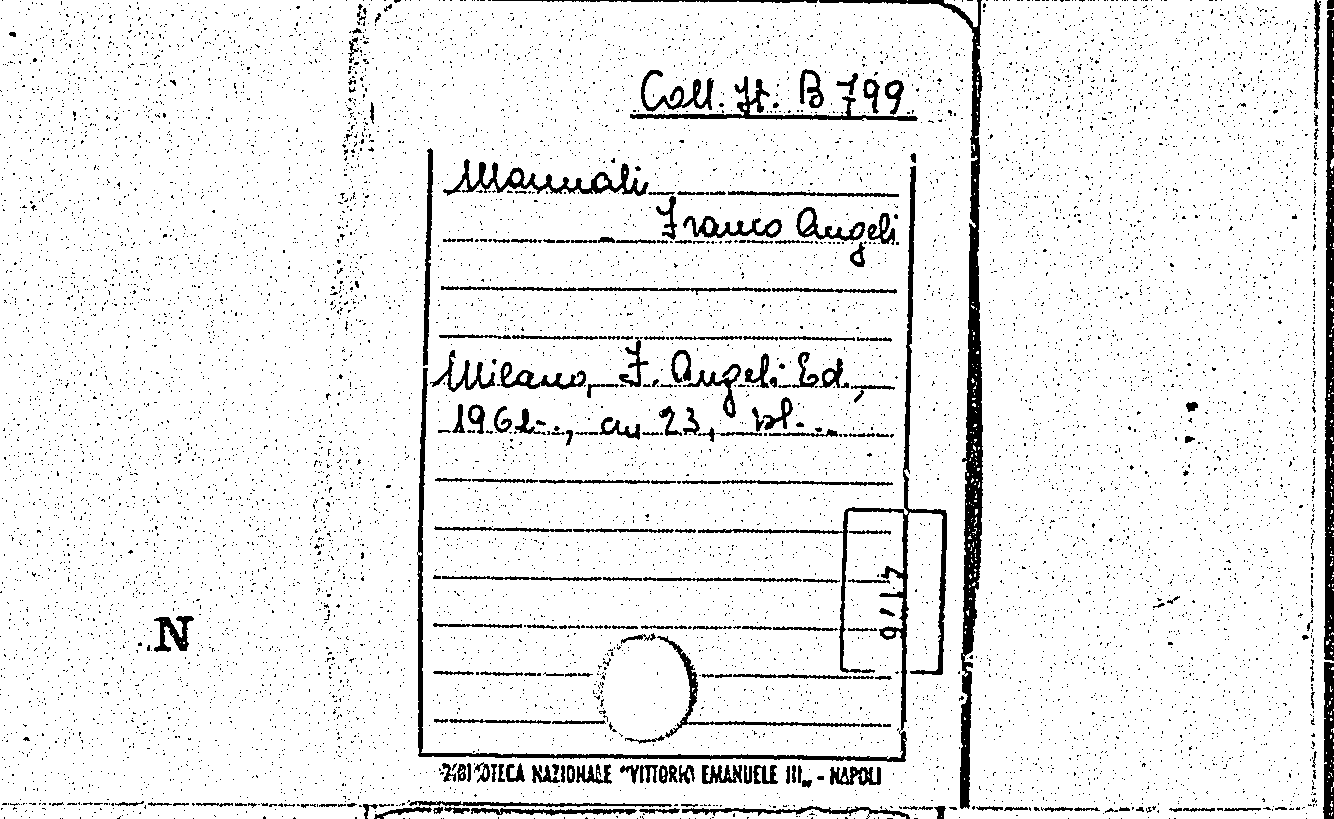 Coll. It. B 799
Manuali
Franco Angeli
Milano, F. Angeli Ed.,
196 -., cm 23, vl. ...
9/17
N
BIBLIOTECA NAZIONALE "VITTORIO EMANUELE III" - NAPOLI